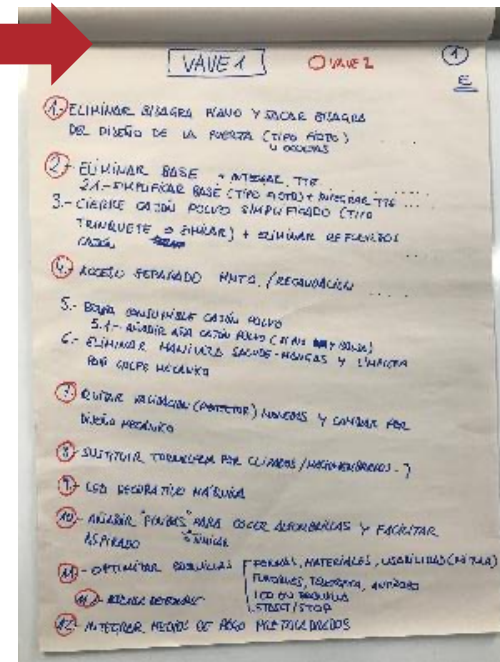 VAVE 1
VAVE 2
1
E
1.- ELIMINAR BISAGRA PIANO Y SACAR BISAGRA
DEL DISEÑO DE LA PUERTA (TIPO
OCULTAS
2.- ELIMINAR BASE + INTEGRAR
2.1.- SIMPLIFICAR BASE (TIPO + INTEGRAR
3.- CIERRE CAJÓN POLVO SIMPLIFICADO (TIPO
TRINQUETE o SIMILAR) + ELIMINAR REFUERZOS
CAJÓN
4.- ACCESO SEPARADO MNTO. / RECAUDACIÓN
5.- BOLSA CONSUMIBLE CAJÓN POLVO
5.1.- AÑADIR ASA CAJÓN POLVO
6.- ELIMINAR MANIVELA SACUDE-MANGAS Y LIMPIEZA
POR GOLPE MECÁNICO
7.- QUITAR VALIDACIÓN (DETECTOR) MONEDAS Y CAMBIAR POR
DISEÑO MECÁNICO
8.- SUSTITUIR TORNILLERÍA POR
9.- LED DECORATIVO MÁQUINA
10.- AÑADIR "PINZAS" PARA COGER ALFOMBRILLAS Y FACILITAR
ASPIRADO o SIMILAR
11.- OPTIMIZAR BOQUILLAS FORMAS, MATERIALES, USABILIDAD
LED EN BOQUILLA
START/STOP
12.- INTEGRAR MEDIOS DE PAGO